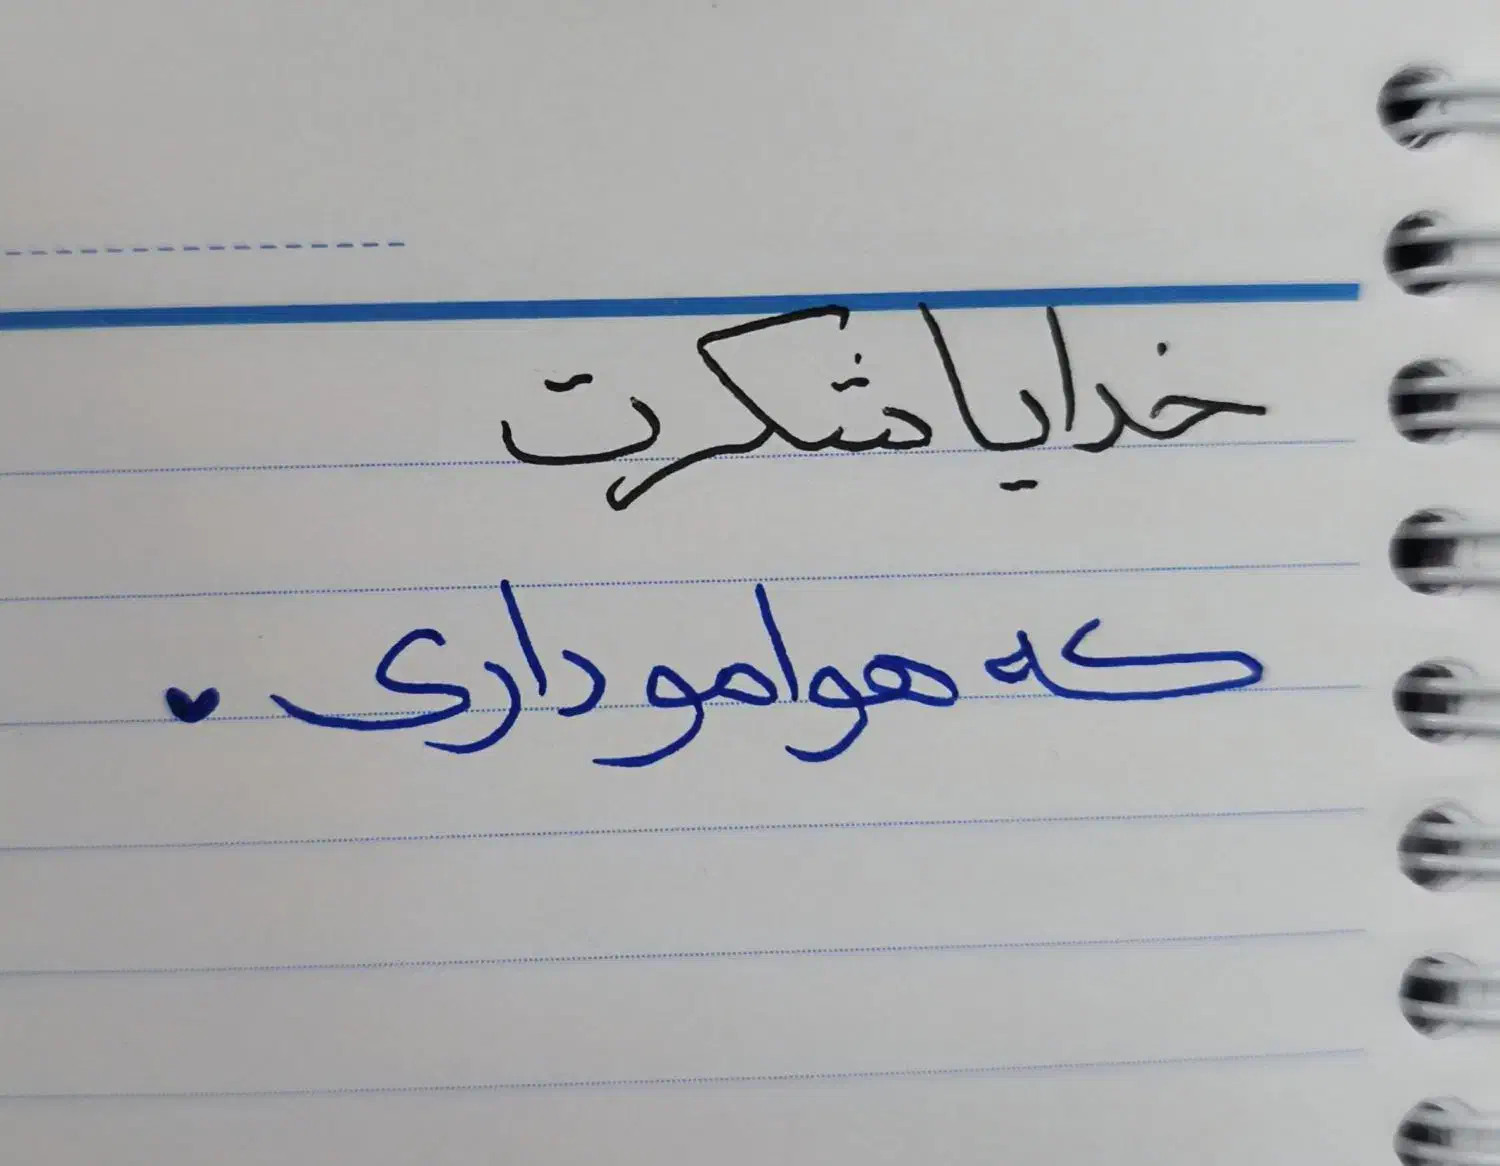 خدایا شکرت
که هوامو داری ♥